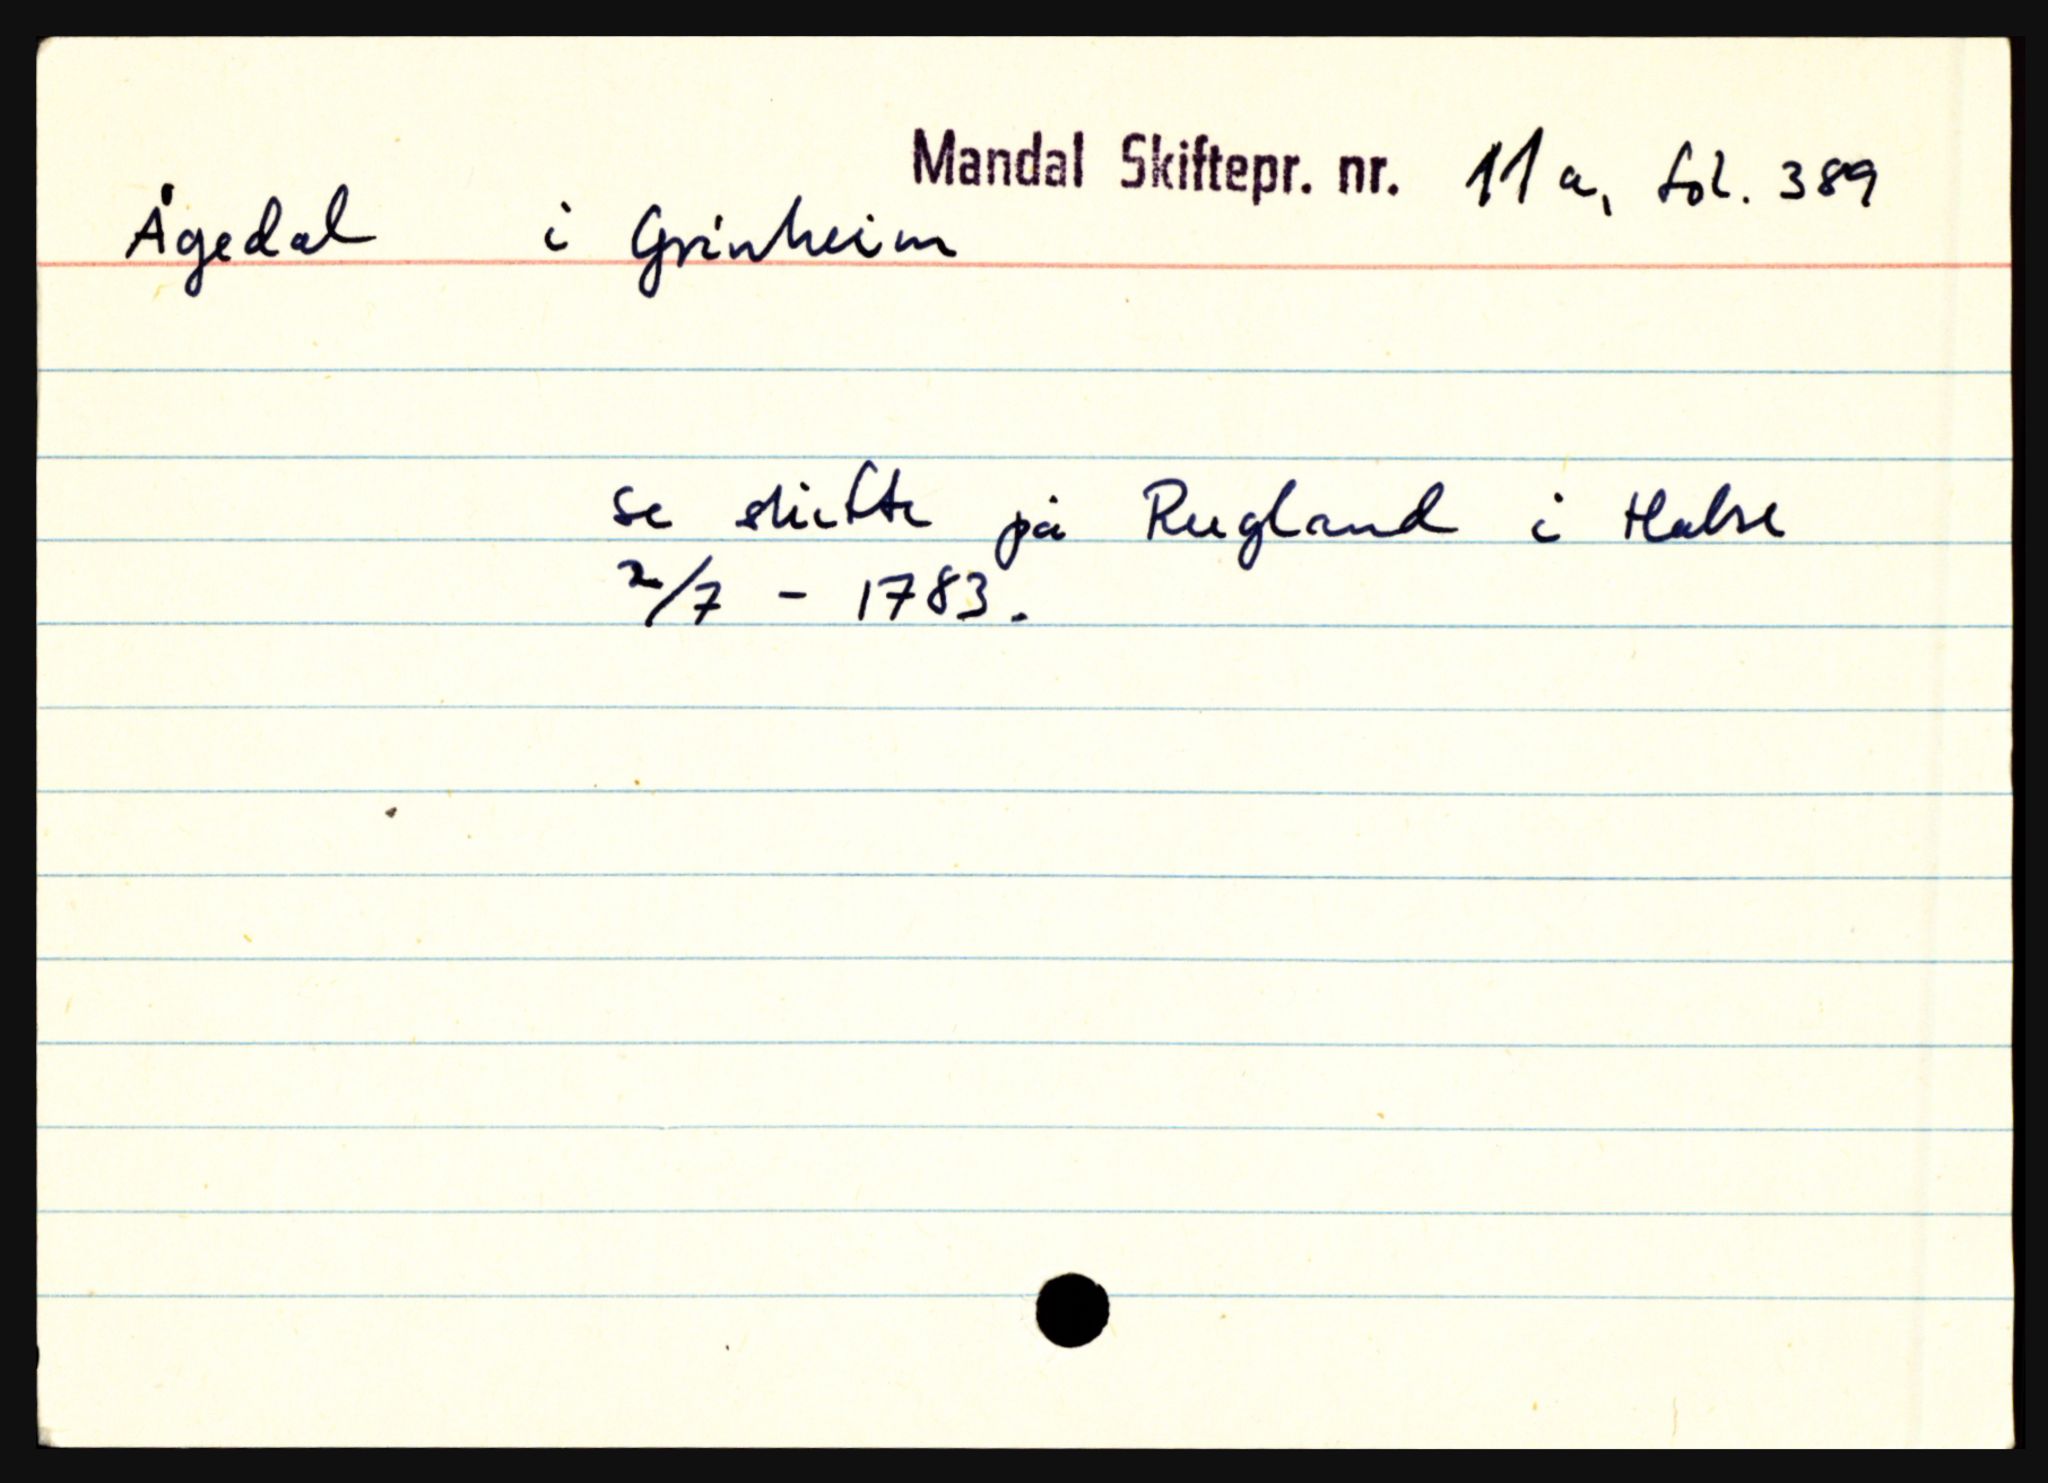 Mandal Skiftepr. nr. 11a, fol. 389
Ågedal i Grinheim
se skifte på Rugland i Halse
2/7 - 1783.